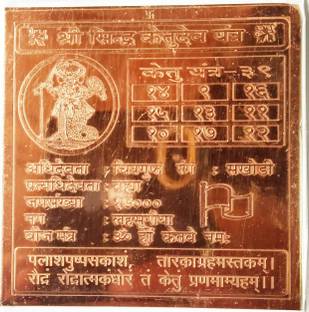 卐
श्री सिद्ध केतुदेव यंत्र
केतु यंत्र-३९
१४ ९ १६
१५ १३ ११
१० १७ १२
अधिदेवता : चित्रगुप्त :
प्रत्यधिदेवता : ब्रह्मा
जपसंख्या : १७०००
नग : लहसुनिया
बीज मंत्र : ॐ कतवे नमः
पलाशपुष्पसकाशं, तारकाग्रहमस्तकम्।
रौद्रं रौद्रात्मकंघोरं तं केतुं प्रणमाम्यहम्।।